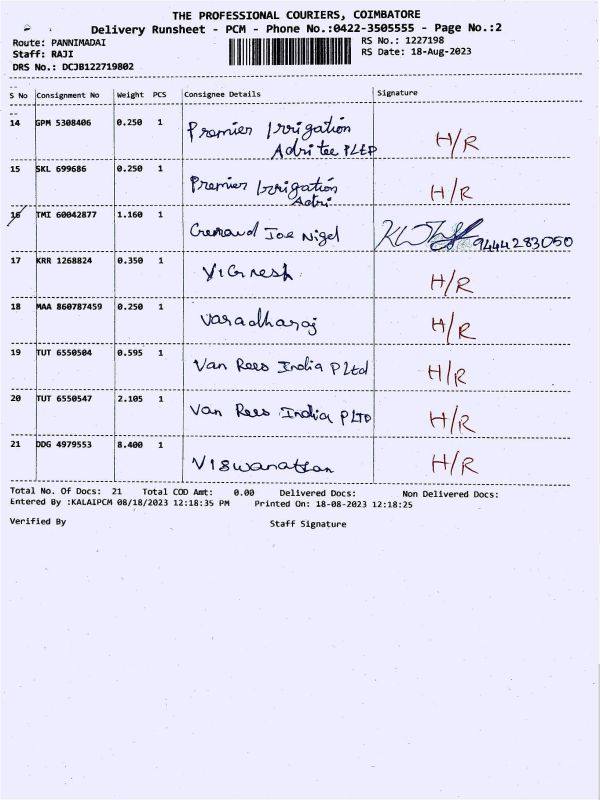 THE PROFESSIONAL COURIERS, COIMBATORE
Delivery Runsheet - PCM - Phone No.:0422-3505555 - Page No.:2
Route: PANNIMADAI
RS No.: 1227198
Staff: RAJI
RS Date: 18-Aug-2023
DRS No.: DCJB122719802
S No Consignment No Weight PCS Consignee Details Signature
14 GPM 5308406 0.250 1 Premier Irrigation
Adritee PLTD H/R
15 SKL 699686 0.250 1 Premier Irrigation
Adri H/R
16 TMI 60042877 1.160 1 Joe Nigel 9444283050
17 KRR 1268824 0.350 1 Vignesh H/R
18 MAA 860787459 0.250 1 Varadharaj H/R
19 TUT 6550504 0.595 1 Van Rees India P Ltd H/R
20 TUT 6550547 2.105 1 Van Rees India P LTD H/R
21 DDG 4979553 8.400 1 Viswanathan H/R
Total No. Of Docs: 21 Total COD Amt: 0.00 Delivered Docs: Non Delivered Docs:
Entered By :KALAIPCM 08/18/2023 12:18:35 PM Printed On: 18-08-2023 12:18:25
Verified By Staff Signature